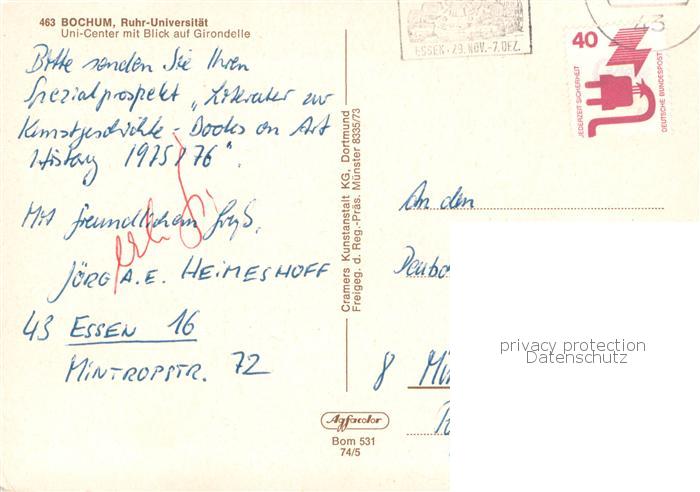 463 BOCHUM, Ruhr-Universität
Uni-Center mit Blick auf Girondelle
Bitte senden Sie Ihren
Spezialprospekt „Literatur zur
Kunstgeschichte - Books on Art
History 1975/76".
Mit freundlichem Gruß,
JÖRG A.E. HEIMESHOFF
43 ESSEN 16
MINTROPSTR. 72
Cramers Kunstanstalt KG, Dortmund
Freigeg. d. Reg.-Präs. Münster 8335/73
Agfacolor
Bom 531
74/5
ESSEN · 29. NOV.-7. DEZ.
43
40
JEDERZEIT SICHERHEIT
DEUTSCHE BUNDESPOST
An den
8
privacy protection
Datenschutz